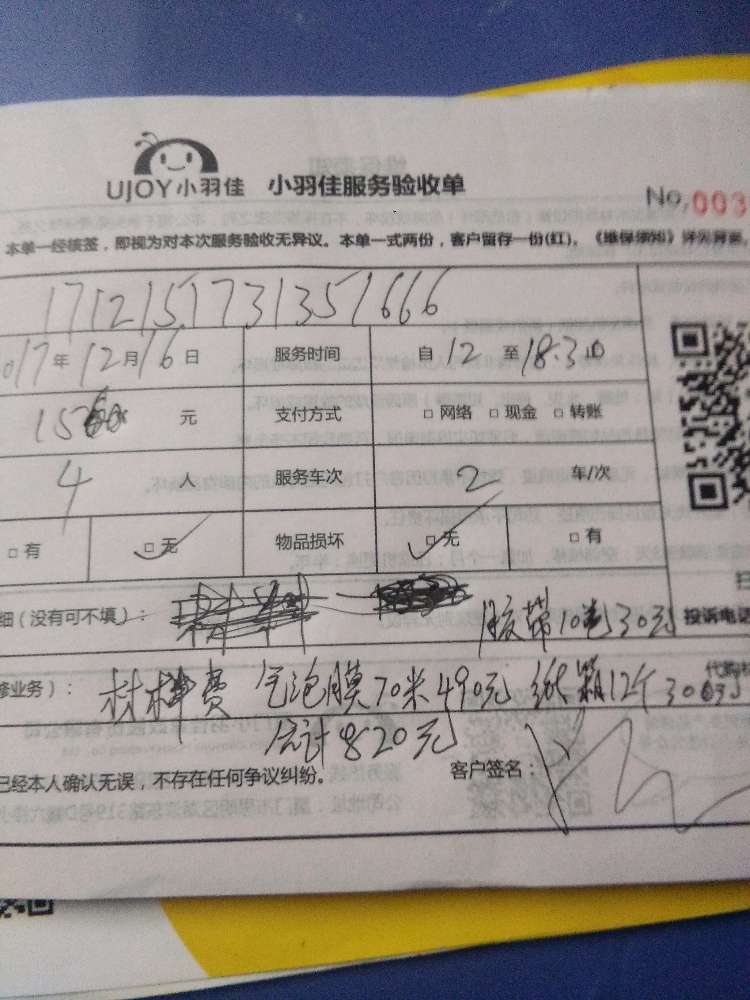 UJOY小羽佳 小羽佳服务验收单
No.003
本单一经核签，即视为对本次服务验收无异议。本单一式两份，客户留存一份(红)。《维保须知》详见背面。
1712151731351666
017年12月16日 服务时间 自12至18:30止
元 支付方式 □网络 □现金 □转账
4人 服务车次 2车/次
□有 □无 物品损坏 □无 □有
细（没有可不填）： 胶带10卷30元 投诉电话
修业务）： 材料费 气泡膜70米490元 纸箱12个300元 代购材
合计820元
已经本人确认无误，不存在任何争议纠纷。 客户签名：